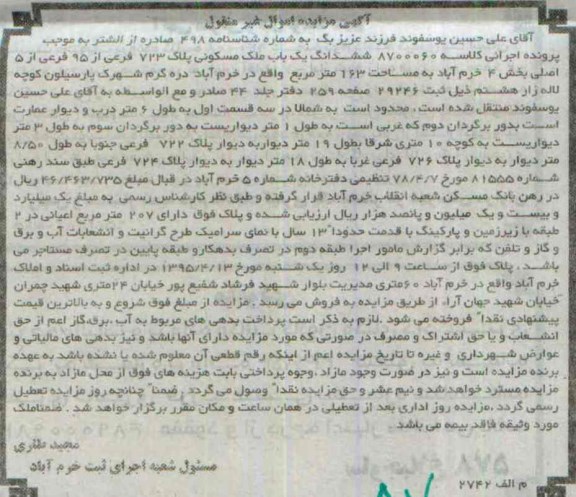 آگهی مزایده اموال غیر منقول
آقای علی حسین یوسفوند فرزند عزیز بگ به شماره شناسنامه ۴۹۸ صادره از الشتر به موجب
پرونده اجرائی کلاسه ۸۷۰۰۰۶۰ ششدانگ یک باب ملک مسکونی پلاک ۷۲۳ فرعی از ۹۵ فرعی از ۵
اصلی بخش ۴ خرم آباد به مساحت ۱۶۳ متر مربع واقع در خرم آباد دره گرم شهرک پارسیلون کوچه
لاله زار هشتم ذیل ثبت ۲۹۲۴۶ صفحه ۲۵۹ دفتر جلد ۴۴ صادر و مع الواسطه به آقای علی حسین
یوسفوند منتقل شده است . محدود است به شمالا در سه قسمت اول به طول ۶ متر درب و دیوار عمارت
است بدور برگردان دوم که غربی است به طول ۱ متر دیواریست به دور برگردان سوم به طول ۳ متر
دیواریست به کوچه ۱۰ متری شرقا بطول ۱۹ متر دیواربه دیوار پلاک ۷۲۲ فرعی جنوبا به طول ۸/۵۰
متر دیوار به دیوار پلاک ۷۲۶ فرعی غربا به طول ۱۸ متر دیوار به دیوار پلاک ۷۲۴ فرعی طبق سند رهنی
شماره ۸۱۵۵۵ مورخ ۷۸/۴/۷ تنظیمی دفترخانه شماره ۵ خرم آباد در قبال مبلغ ۴۶/۴۶۳/۷۳۵ ریال
در رهن بانک مسکن شعبه انقلاب خرم آباد قرار گرفته و طبق نظر کارشناس رسمی به مبلغ یک میلیارد
و بیست و یک میلیون و پانصد هزار ریال ارزیابی شده و پلاک فوق دارای ۲۰۷ متر مربع اعیانی در ۲
طبقه با زیرزمین و پارکینگ با قدمت حدودا ۱۳ سال با نمای سرامیک طرح گرانیت و انشعابات آب و برق
و گاز و تلفن که برابر گزارش مامور اجرا طبقه دوم در تصرف بدهکارو طبقه پایین در تصرف مستاجر می
باشد . پلاک فوق از ساعت ۹ الی ۱۲ روز یک شنبه مورخ ۱۳۹۵/۴/۱۳ در اداره ثبت اسناد و املاک
خرم آباد واقع در خرم آباد ۶۰متری مدیریت بلوار شهید فرشاد شفیع پور خیابان ۲۴متری شهید چمران
خیابان شهید جهان آرا، از طریق مزایده به فروش می رسد . مزایده از مبلغ فوق شروع و به بالاترین قیمت
پیشنهادی نقدا" فروخته می شود .لازم به ذکر است پرداخت بدهی های مربوط به آب ،برق،گاز اعم از حق
انشعاب و یا حق اشتراک و مصرف در صورتی که مورد مزایده دارای آنها باشد و نیز بدهی های مالیاتی و
عوارض شهرداری و غیره تا تاریخ مزایده اعم از اینکه رقم قطعی آن معلوم شده یا نشده باشد به عهده
برنده مزایده است و نیز در صورت وجود مازاد ،وجوه پرداختی بابت هزینه های فوق از محل مازاد به برنده
مزایده مسترد خواهد شد و نیم عشر و حق مزایده نقدا" وصول می گردد . ضمنا" چنانچه روز مزایده تعطیل
رسمی گردد ،مزایده روز اداری بعد از تعطیلی در همان ساعت و مکان مقرر برگزار خواهد شد . ضمناملک
مورد وثیقه فاقد بیمه می باشد.
مسئول شعبه اجرای ثبت خرم آباد
م الف ۲۷۴۲